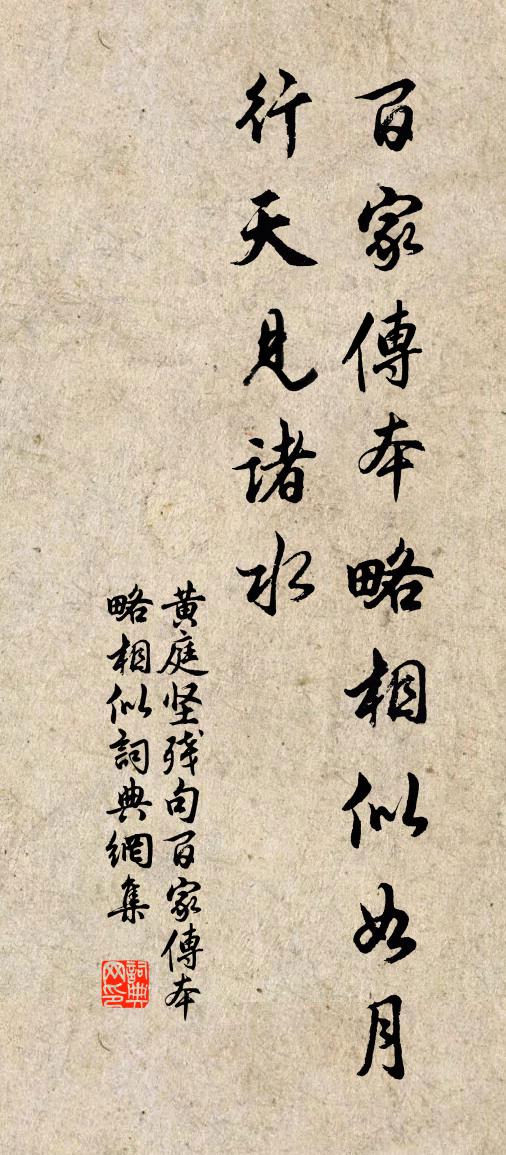 百家傳本略相似如月
行天見諸水
黄庭坚残句百家傳本
略相似詞典網集
詞典网印